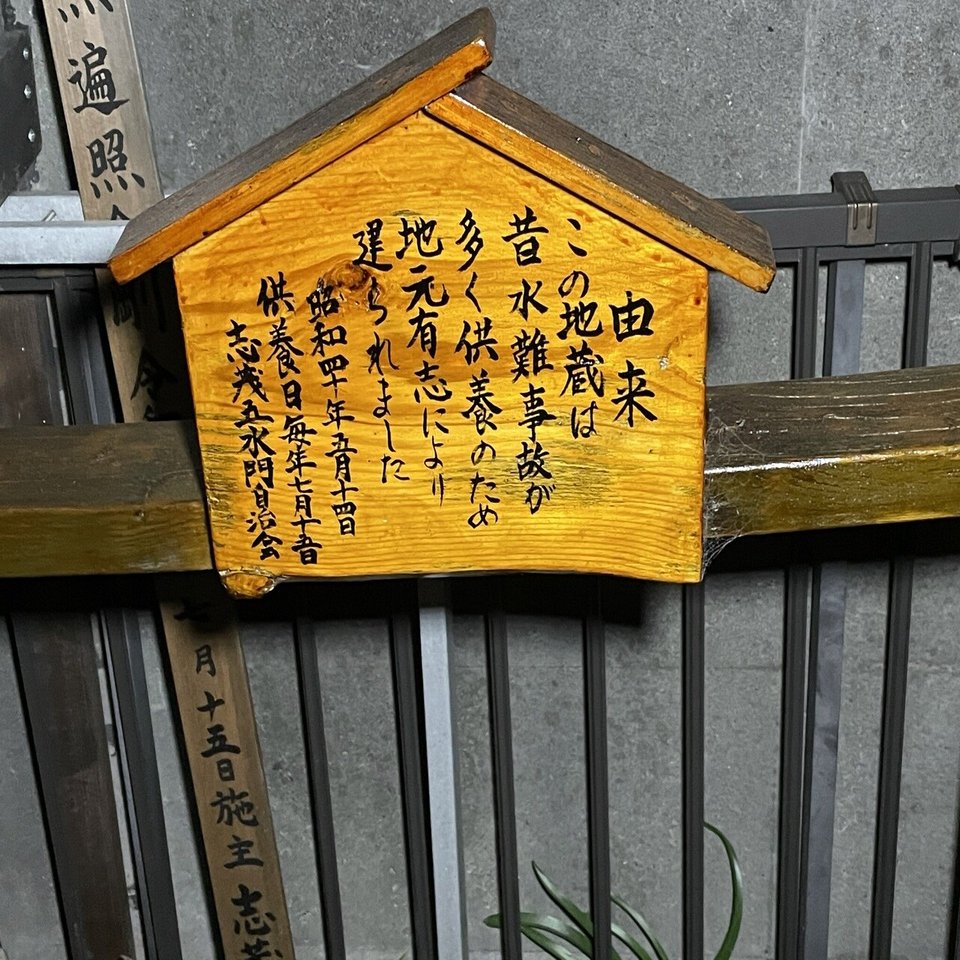 由来
この地蔵は
昔水難事故が
多く供養のため
地元有志により
建られました
昭和四十年五月十四日
供養日毎年七月十五日
志茂五水門自治会
遍照金
月十五日施主志茂